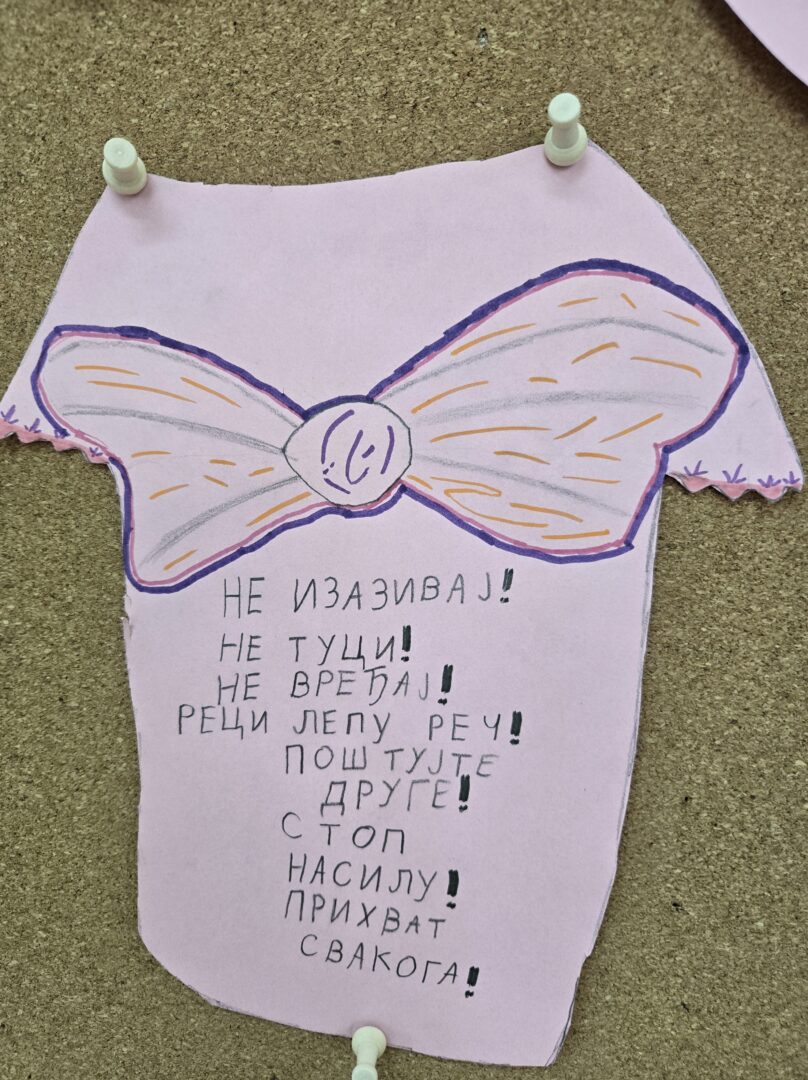 НЕ ИЗАЗИВАЈ!
НЕ ТУЦИ!
НЕ ВРЕЂАЈ!
РЕЦИ ЛЕПУ РЕЧ!
ПОШТУЈТЕ
ДРУГЕ!
СТОП
НАСИЛУ!
ПРИХВАТ
СВАКОГА!